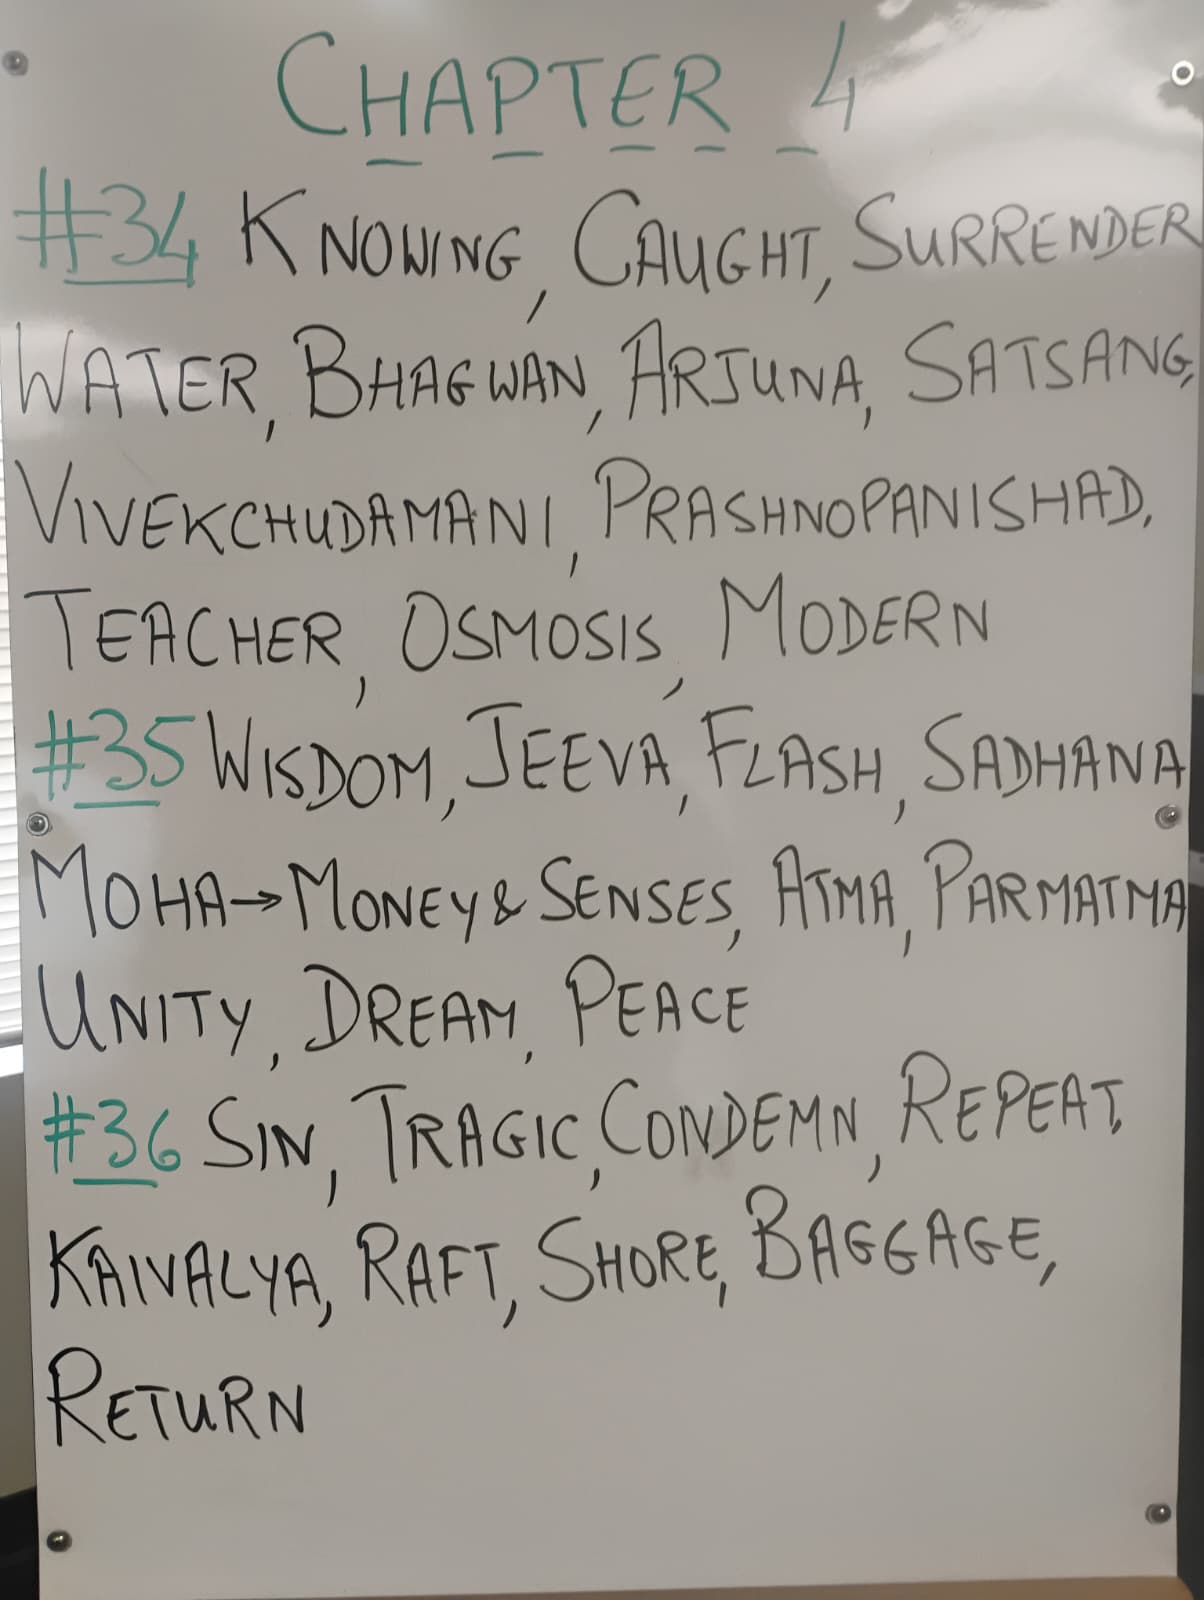 CHAPTER 4
#34 KNOWING, CAUGHT, SURRENDER
WATER, BHAGWAN, ARJUNA, SATSANG,
VIVEKCHUDAMANI, PRASHNOPANISHAD,
TEACHER, OSMOSIS, MODERN
#35 WISDOM, JEEVA, FLASH, SADHANA
MOHA→MONEY & SENSES, ATMA, PARMATMA
UNITY, DREAM, PEACE
#36 SIN, TRAGIC, CONDEMN, REPEAT,
KAIVALYA, RAFT, SHORE, BAGGAGE,
RETURN